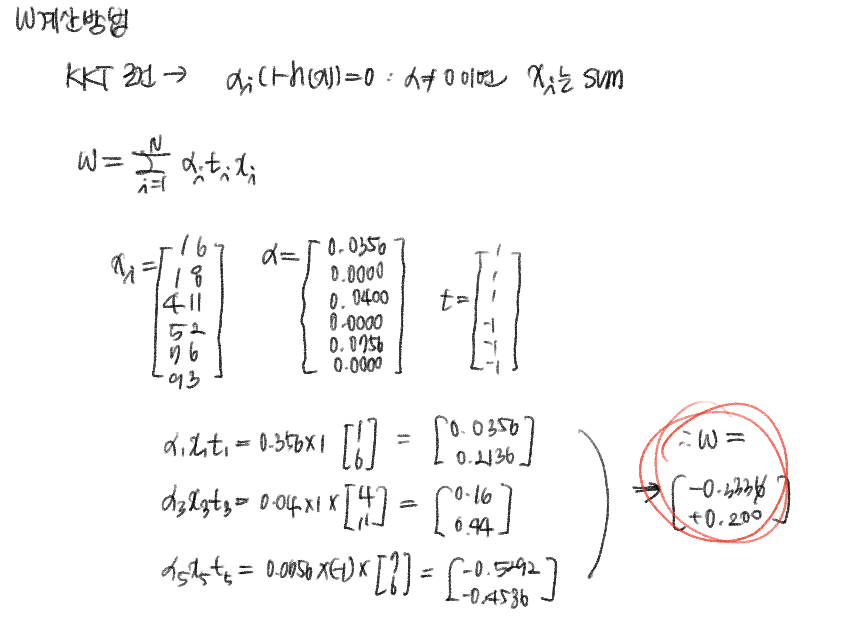 W계산방법
KKT 조건 → αᵢ(1-h(x))=0 : α≠0이면 xᵢ는 sum
W = Σ_{i=1}^{N} αᵢtᵢxᵢ
xᵢ = [1 6; 1 8; 4 11; 5 2; 7 6; 9 3] α = [0.0356; 0.0000; 0.0400; 0.0000; 0.0756; 0.0000] t = [1; 1; 1; -1; -1; -1]
α₁x₁t₁ = 0.356×1 [1; 6] = [0.0356; 0.2136]
α₃x₃t₃ = 0.04×1× [4; 11] = [0.16; 0.44]
α₅x₅t₅ = 0.0056×(-1)× [7; 6] = [-0.5292; -0.4536]
∴ W =
→ [-0.3336; +0.200]